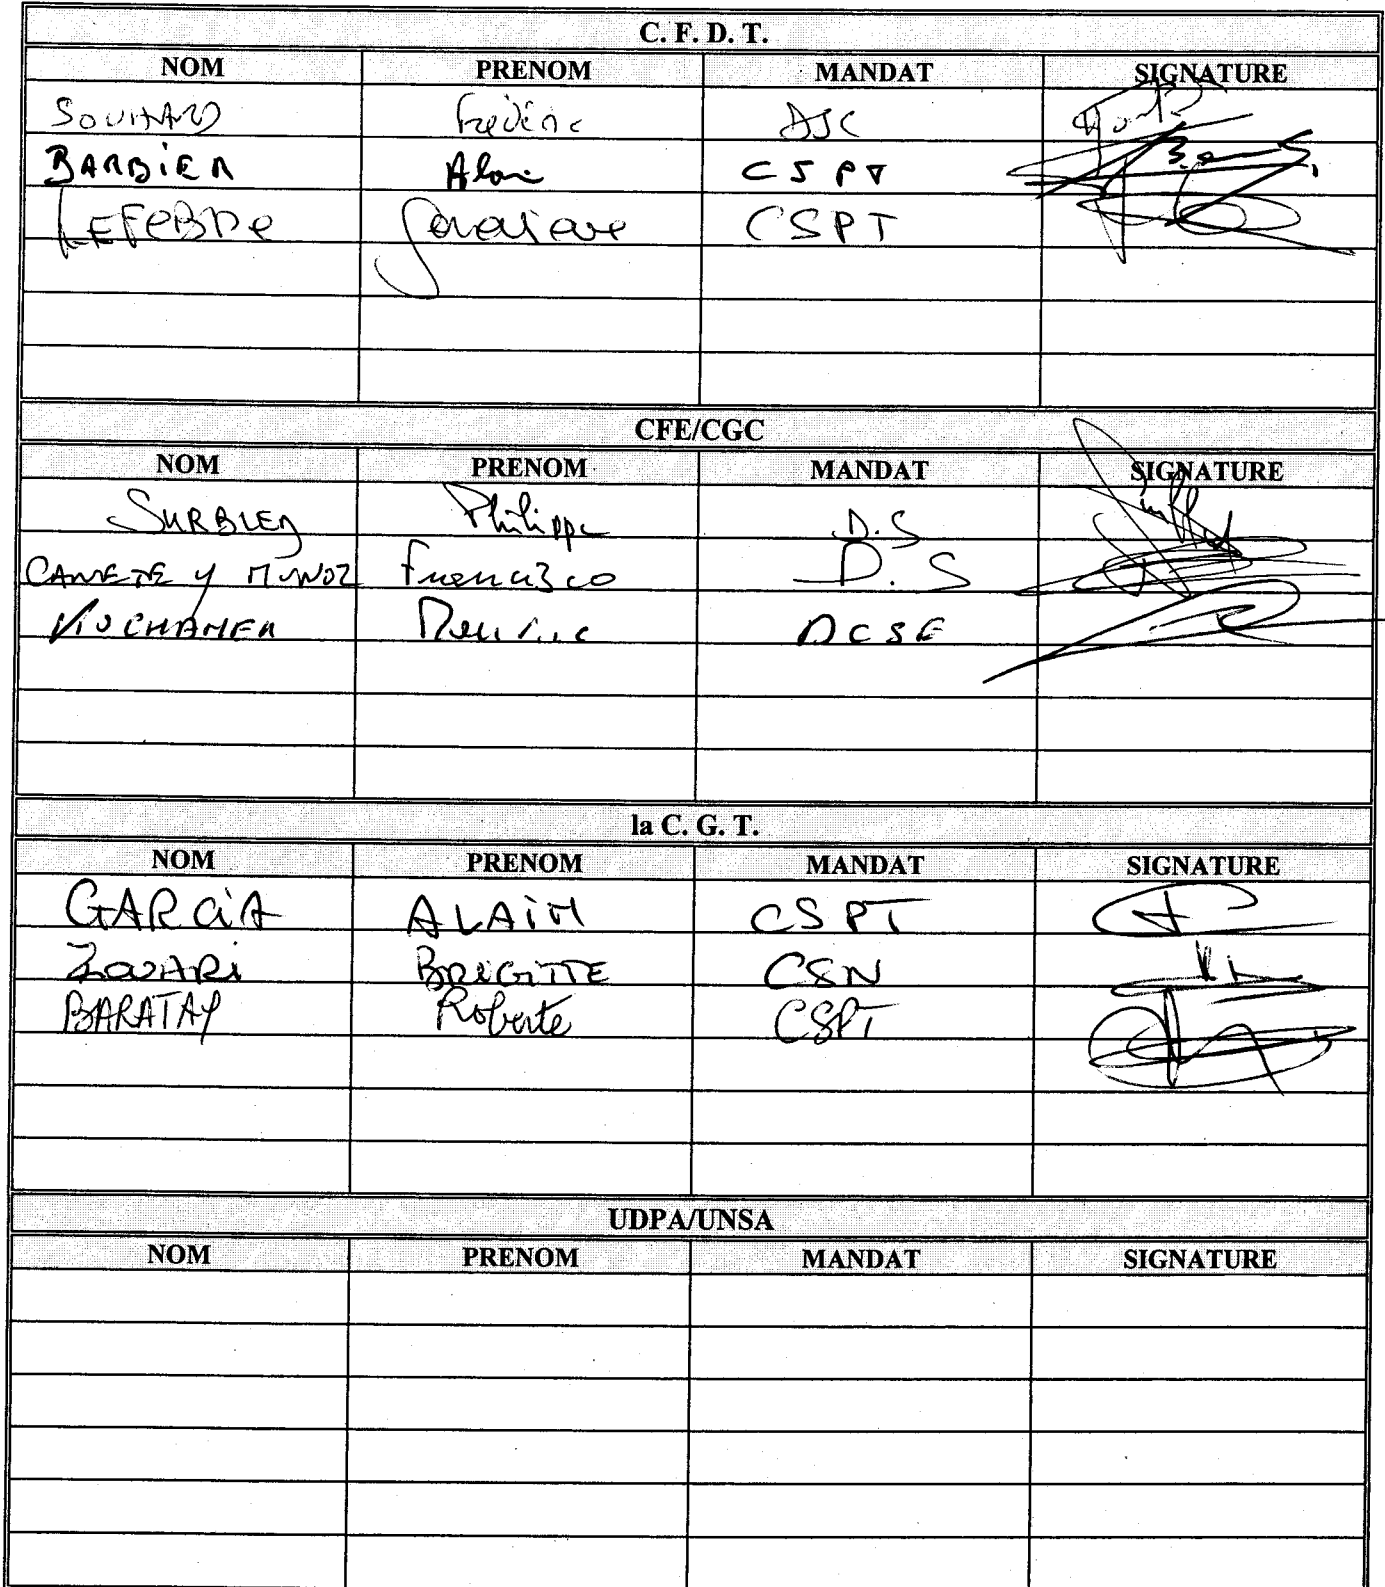 C. F. D. T.
NOM PRENOM MANDAT SIGNATURE
SOUHARD Frédéric DSC
BARBIER Alain CSPT
LEFEBVRE CSPT
CFE/CGC
NOM PRENOM MANDAT SIGNATURE
SURBLED Philippe D.S
CANETE Y MUNOZ Francisco D.S
DCSE
la C. G. T.
NOM PRENOM MANDAT SIGNATURE
GARCiA ALAiN CSPT
ZOUARi BRIGITTE CSN
BARATAY Roberte CSPT
UDPA/UNSA
NOM PRENOM MANDAT SIGNATURE